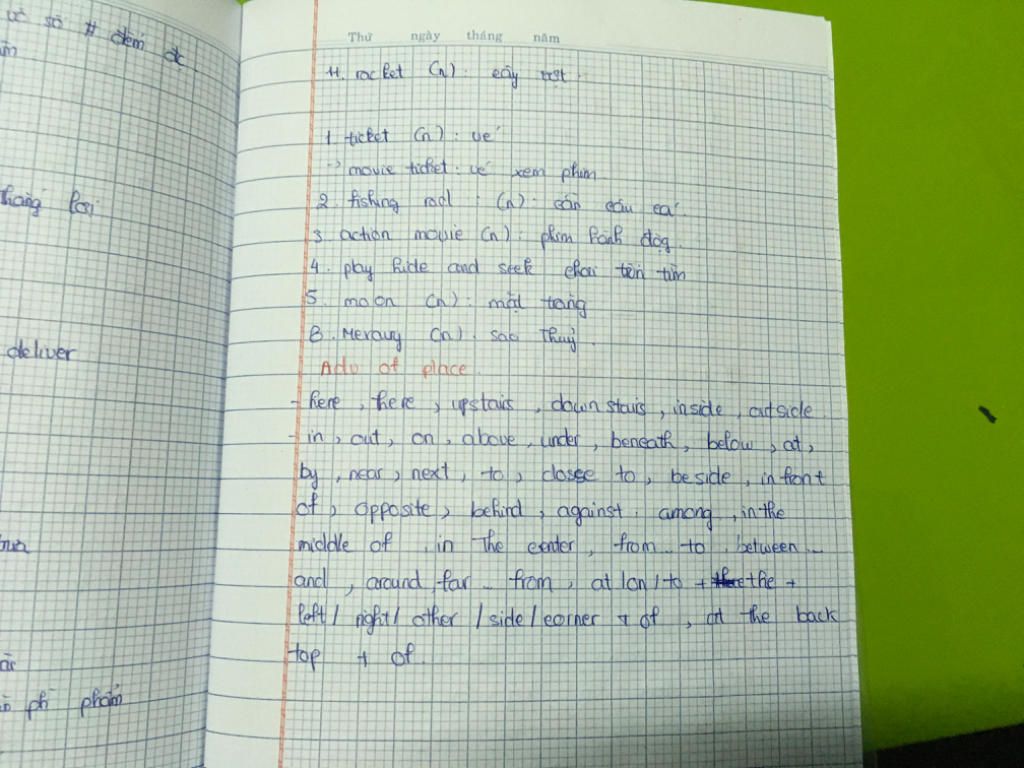 số # đếm đc
Thứ ngày tháng năm
racket (n): cây vợt.
1. ticket (n): vé
-> movie ticket: vé xem phim
2. fishing rod : (n): cần câu cá.
3. action movie (n): phim hành độg.
4. play hide and seek chơi tìm
5. moon (n): mặt trăng
8. Mercury (n). sao Thuỷ.
Adv of place.
- here, here, upstairs, down stairs, inside, outside.
- in, out, on, above, under, beneath, below, at,
by, near, next, to, closee to, beside, in front
of, opposite, behind, against. among, in the
middle of in the center, from.. to between...
and, around, far.. from, at/on/to + the +
left/ right/ other /side/corner + of, at the back
top + of.
deliver
phí phạm